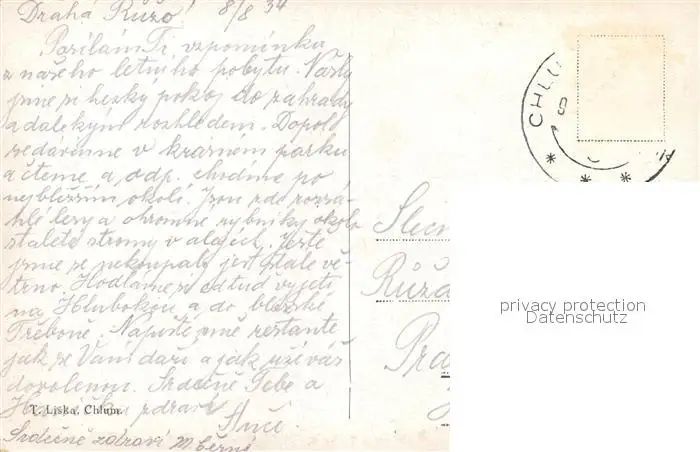 Drahá Růžo! 8/8 34
Posílám Ti vzpomínku
z našeho letního pobytu. Našly
jsme si hezký pokoj do zahrady
a dalekým rozhledem. Dopol.
sedáváme v krásném parku
a čteme a odp. chodíme po
nejbližším okolí. Jsou zde rozsá-
hlé lesy a ohromné rybníky okolo
staleté stromy v alejích. Ještě
jsme se nekoupaly jest stále vě-
trno. Hodláme si odtud vyjeti
na Hlubokou a do blízké
Třeboně. Napište mně restante
jak se Vám daří a jak užíváš
dovolenou. Srdečně Tebe a
zdraví
T. Liska, Chlum.
Srdečně zdraví M. Černá
CHLU
Slec
Růž
Pra
privacy protection
Datenschutz